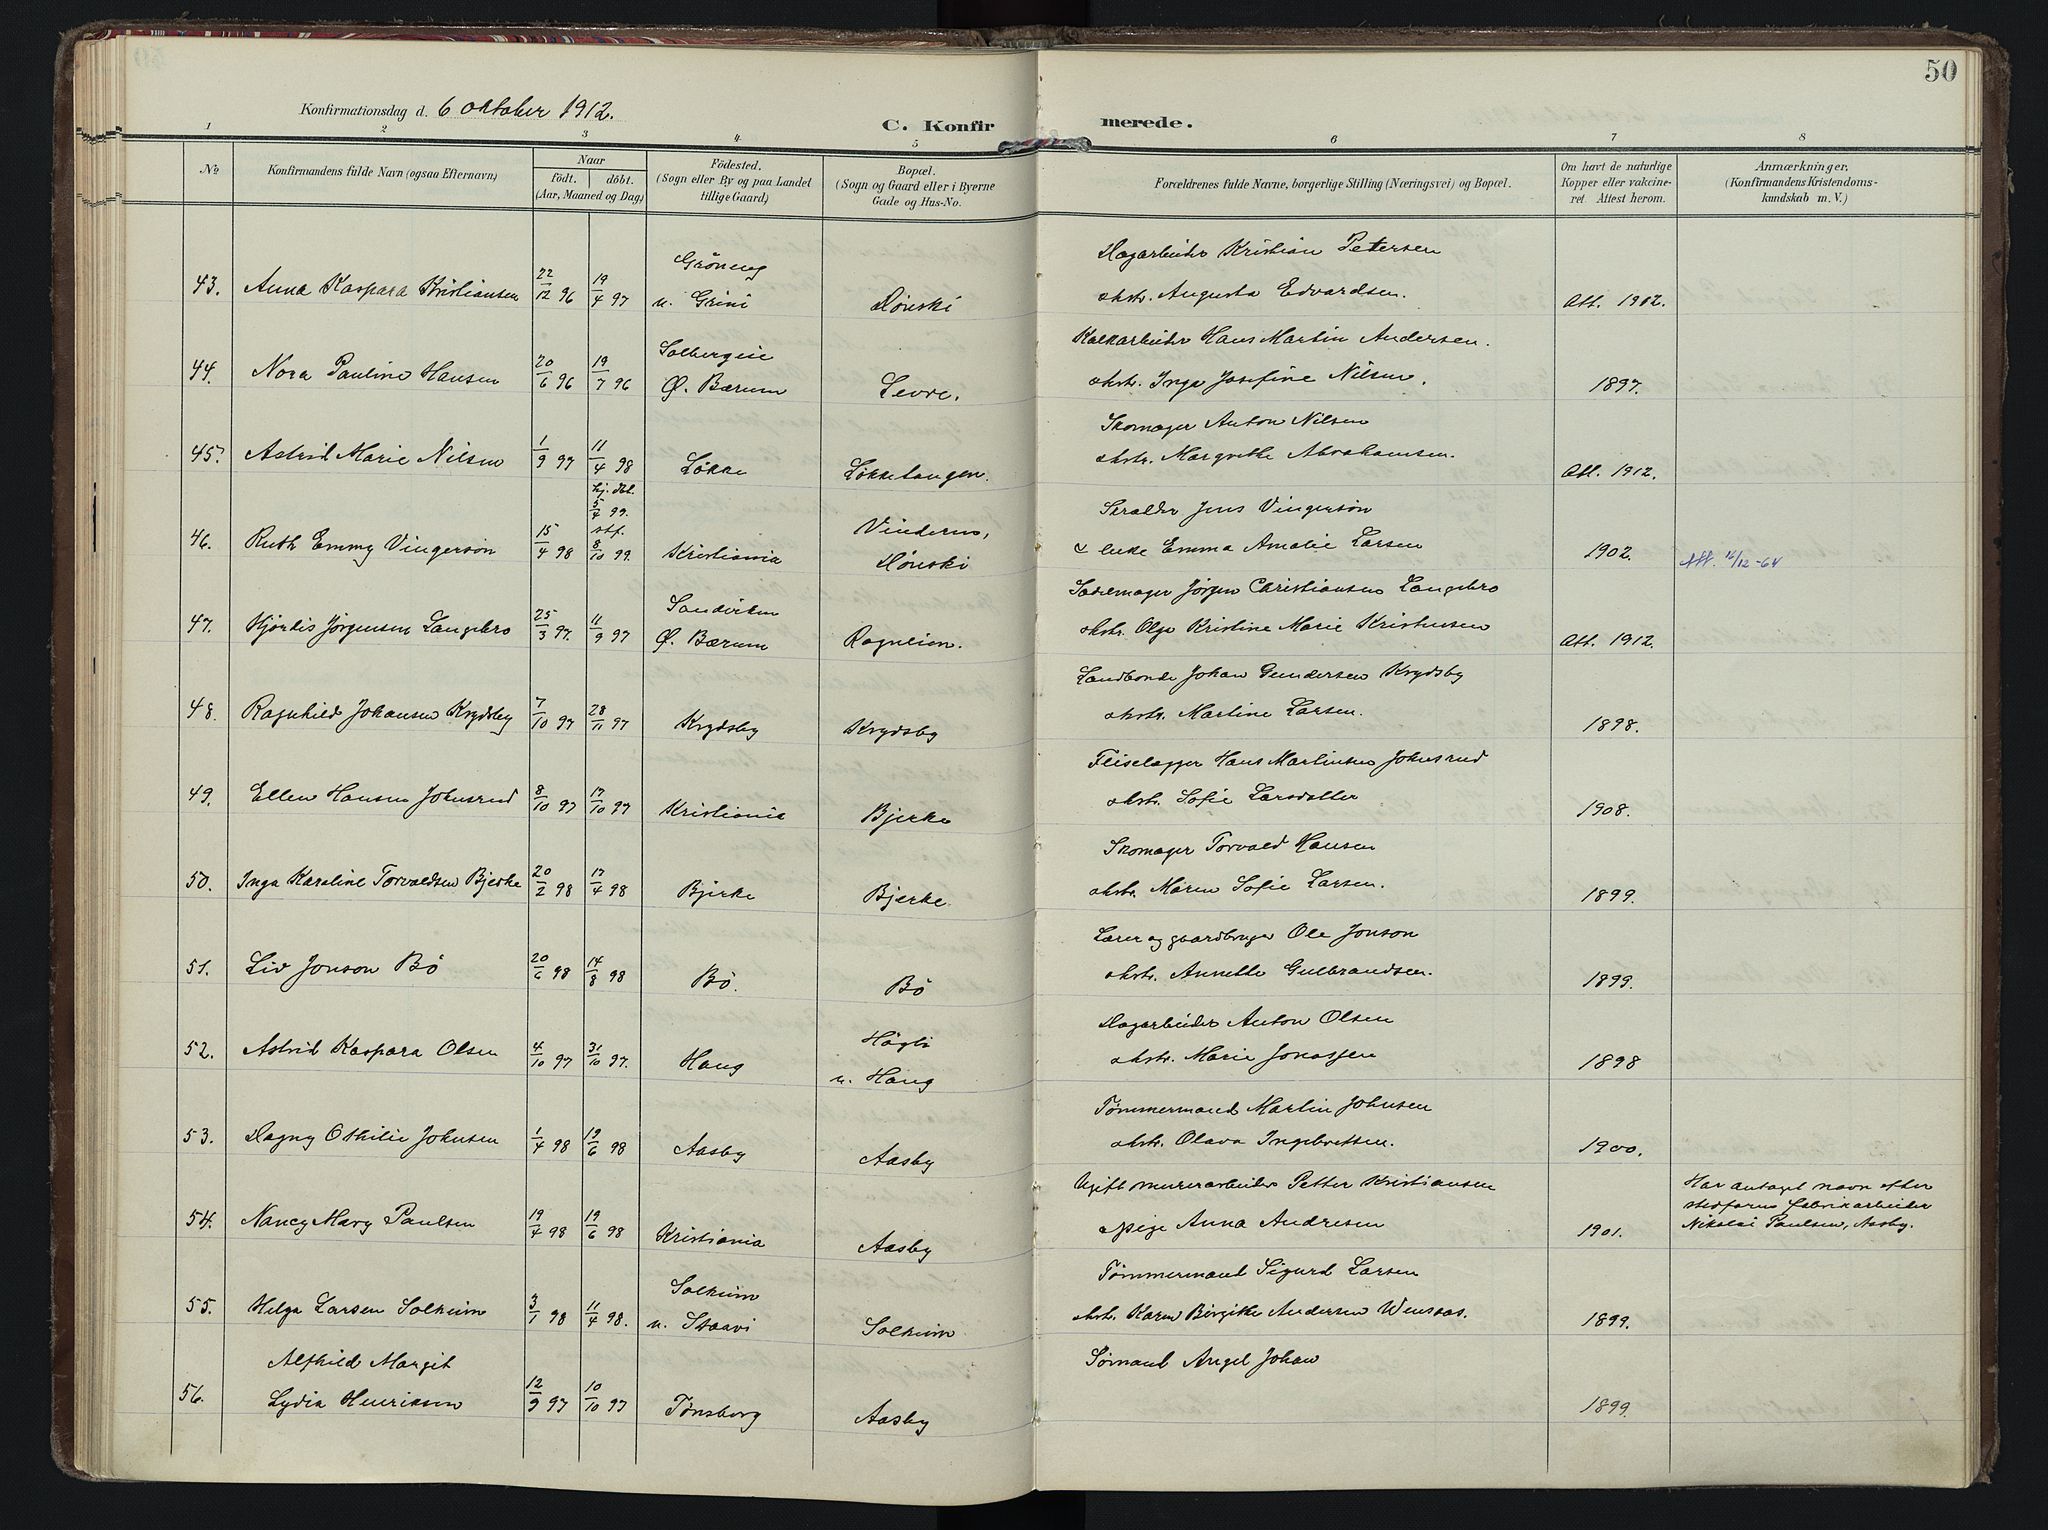 50
Konfirmationsdag d. 6 oktober 1912.
C. Konfirmerede.
1 2 3 4 5 6 7 8
No
Konfirmandens fulde Navn (ogsaa Efternavn)
Naar
födt. döbt.
(Aar, Maaned og Dag.)
Födested.
(Sogn eller By og paa Landet
tillige Gaard.)
Bopœl.
(Sogn og Gaard eller i Byerne
Gade og Hus-No.
Forœldrenes fulde Navne, borgerlige Stilling (Nœringsvei) og Bopœl.
Om havt de naturlige
Kopper eller vakcine-
ret. Attest herom.
Anmœrkninger.
(Konfirmandens Kristendoms-
kundskab m. V.)
Gröneng
Dagarbeider Kristian Petersen
43. Anna Kaspara Kristiansen 22/12 96 19/4 97 u. Grini Dønski
ohstr. Augusta Edvardsen. Att. 1912.
Solbergeie
Kalkarbeider Hans Martin Andersen.
44. Nora Pauline Hansen 20/6 96 19/7 96 Ø. Bærum Levre.
ohstr. Inga Josefine Nilsen. 1897.
Skomager Anton Nilsen
45. Astrid Marie Nilsen 1/9 97 11/4 98 Løkke Løkketangen.
ohstr. Margrethe Abrahamsen. Att. 1912.
hj. dbt.
5/4 99.
stf.
Vinderen,
46. Ruth Emmy Vingersön 15/4 98 8/10 99. Kristiania Dønski
Jens Vingersön
Emma Amalie Larsen 1902. Att. 16/12-64
Ø. Bærum
Sadelmager Jörgen Christiansen Langebro
47. Hjördis Jörgensen Langebro 25/3 97. 11/9 97 Rognlien.
ohstr. Olga Kristine Marie Kristensen Att. 1912.
Landbonde Johan Gundersen Krydsby
48. Ragnhild Johansen Krydsby 7/10 97 28/11 97 Krydsby Krydsby
ohstr. Martine Larsen. 1898.
Fliselægger Hans Martinsen Johnsrud
49. Ellen Hansen Johnsrud 8/10 97 17/10 97 Kristiania Bjerke
ohstr. Sofie Larsdatter 1908.
Skomager Torvald Hansen
50. Inga Karoline Torvaldsen Bjerke 20/2 98 17/4 98 Bjerke Bjerke
ohstr. Maren Sofie Larsen. 1899.
Lærer og gaardbruger Ole Jonson
51. Liv Jonson Bö 20/6 98 14/8 98 Bö. Bö
ohstr. Annette Gulbrandsen. 1899.
Högli
Dagarbeider Anton Olsen
52. Astrid Kaspara Olsen 4/10 97 31/10 97. Haug u. Haug
ohstr. Marie Jonassen 1898
Tømmermand Martin Johnsen
53. Dagny Othilie Johnsen 1/4 98 19/6 98 Aasby Aasby
ohstr. Olava Ingebretsen. 1900.
Ugift murerarbeider Petter Kristiansen
54. Nancy Mary Paulsen 19/4 98 19/6 98 Kristiania Aasby
o pige Anna Andresen 1901.
Har antaget navn efter
stedfaren fabrikarbeider
Nikolai Paulsen, Aasby.
Solheim
Tømmermand Sigurd Larsen
55. Helga Larsen Solheim 3/1 98 11/4 98. u. Staavi Solheim
ohstr. Karen Birgitte Andersen Wensaas. 1899.
Alfhild Margit
Sømand Angel Johan
56. Lydia Henriksen 12/9 97 10/10 97 Tønsberg Aasby
1899.